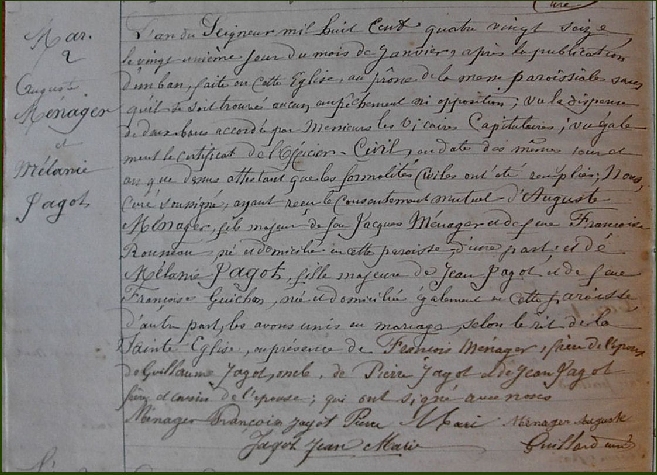 Curé
Mar.
2
Auguste
Ménager
et
Mélanie
Jagot
L'an du Seigneur mil huit cent quatre vingt seize,
le vingt unième jour du mois de Janvier, après la publication
d'un ban, faite en cette Eglise, au prône de la messe paroissiale sans
qu'il se soit trouvé aucun empêchement ni opposition; vu la dispense
de deux bans accordée par Messieurs les Vicaires Capitulaires; vu égale
ment le certificat de l'Officier Civil, en date des mêmes jour et
an que dessus attestant que les formalités civiles ont été remplies; Nous,
curé soussigné, ayant reçu le consentement mutuel d'Auguste
Ménager, fils majeur de feu Jacques Ménager et de feue Françoise
né et domicilié en cette paroisse, d'une part et de
Mélanie Jagot, fille majeure de Jean Jagot et de feue
Françoise Guichet, née et domiciliée également en cette paroisse
d'autre part, les avons unis en mariage, selon le rit de la
Sainte Eglise, en présence de François Ménager, frère de l'époux
de Guillaume Jagot, oncle, de Pierre Jagot et de Jean Jagot
frère et cousin de l'épouse; qui ont signé avec nous
Ménager François Jagot Pierre Marie Ménager Auguste
Jagot Jean Marie Guillard curé